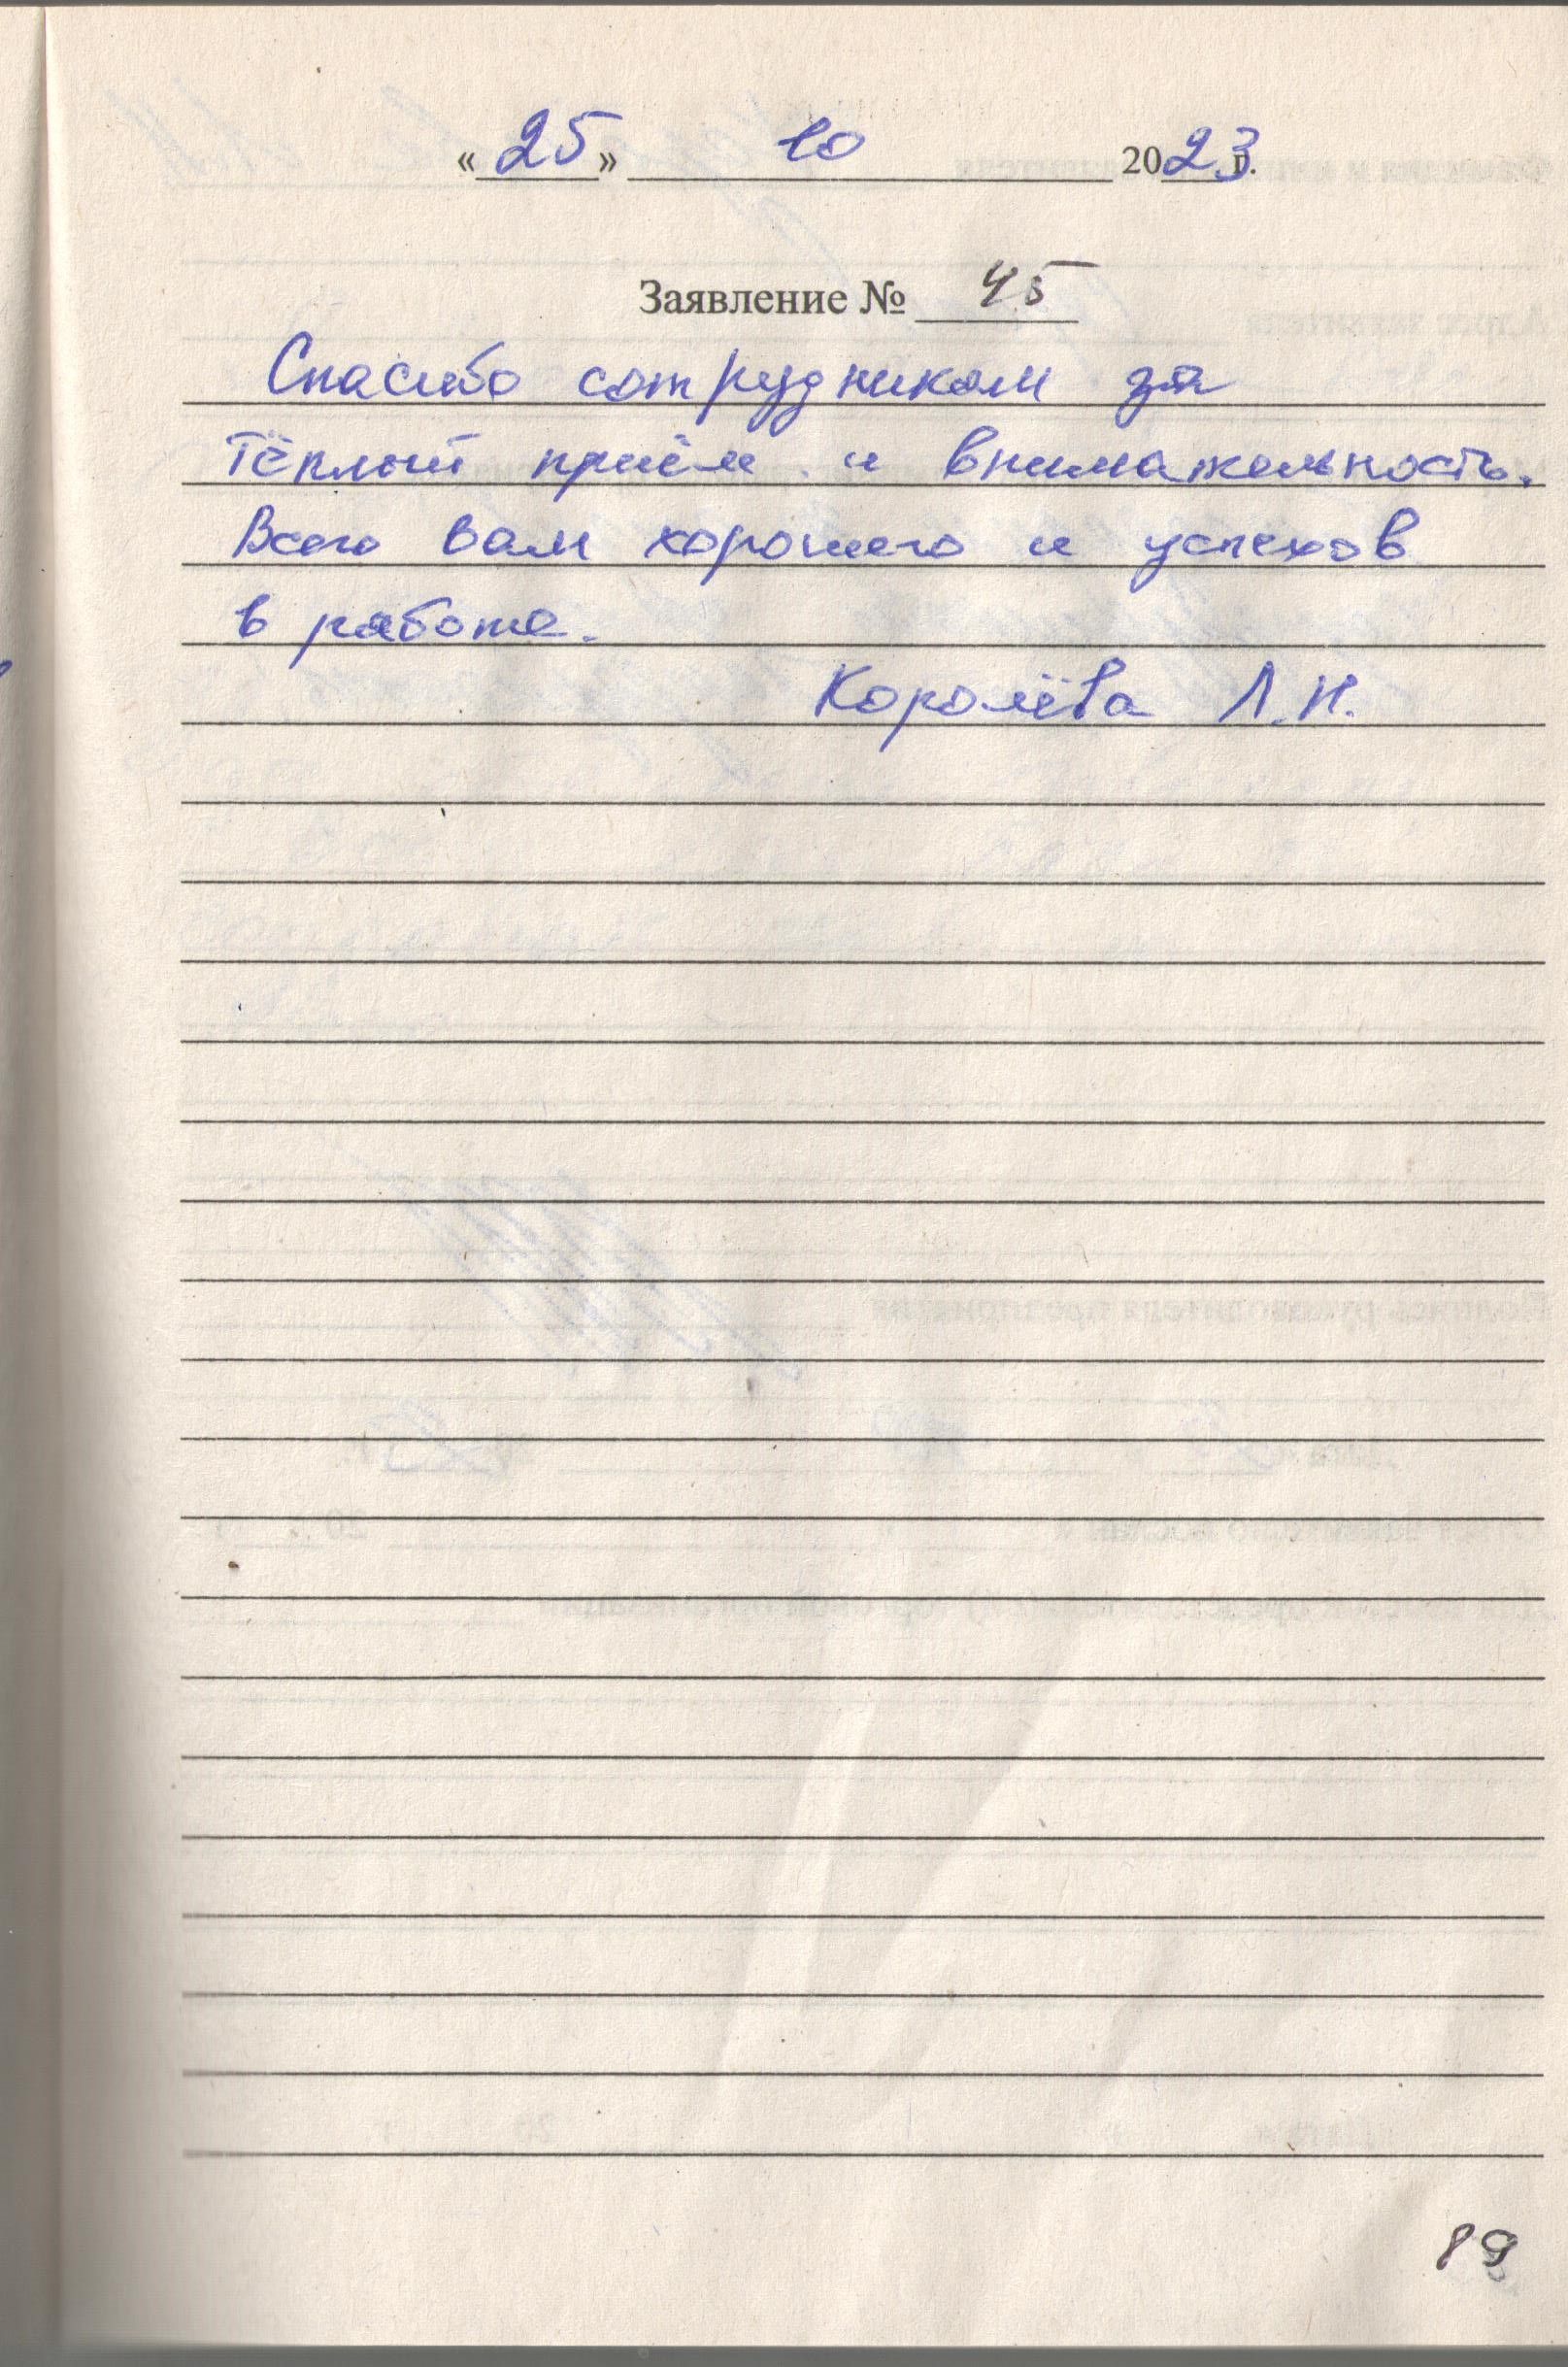 «25» 10 2023 г.
Заявление № 45
Спасибо сотрудникам за
тёплый приём и внимательность.
Всего вам хорошего и успехов
в работе.
Королёва Л.Н.
89